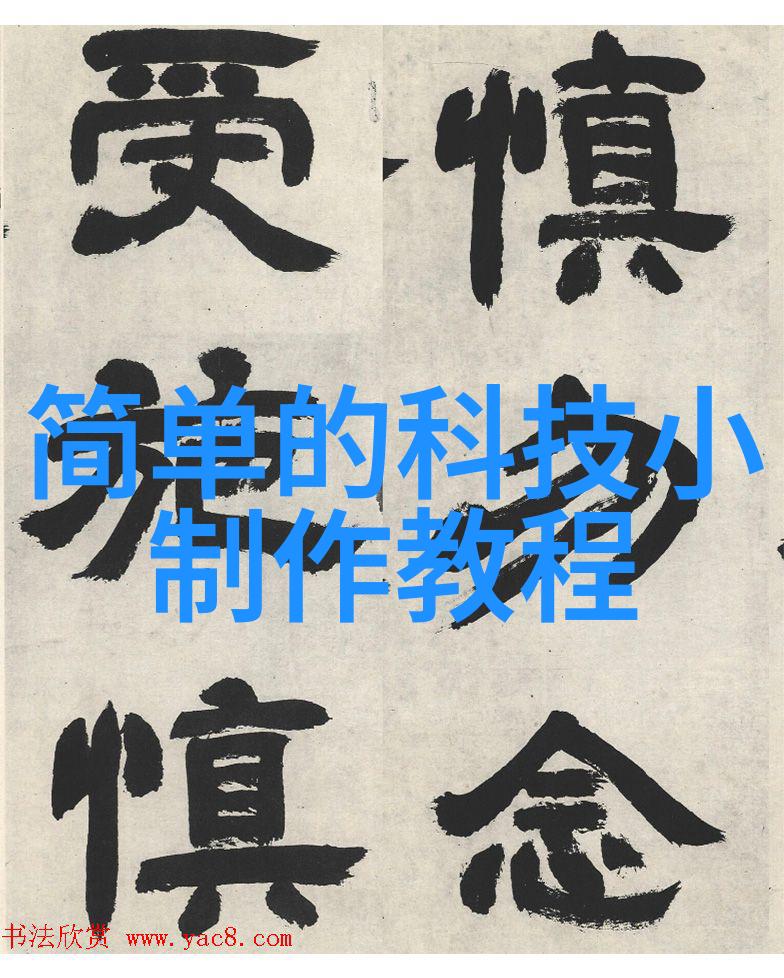 慎勿念
受施慎
简单的科技小
制作教程
书法欣赏 www.yac8.com